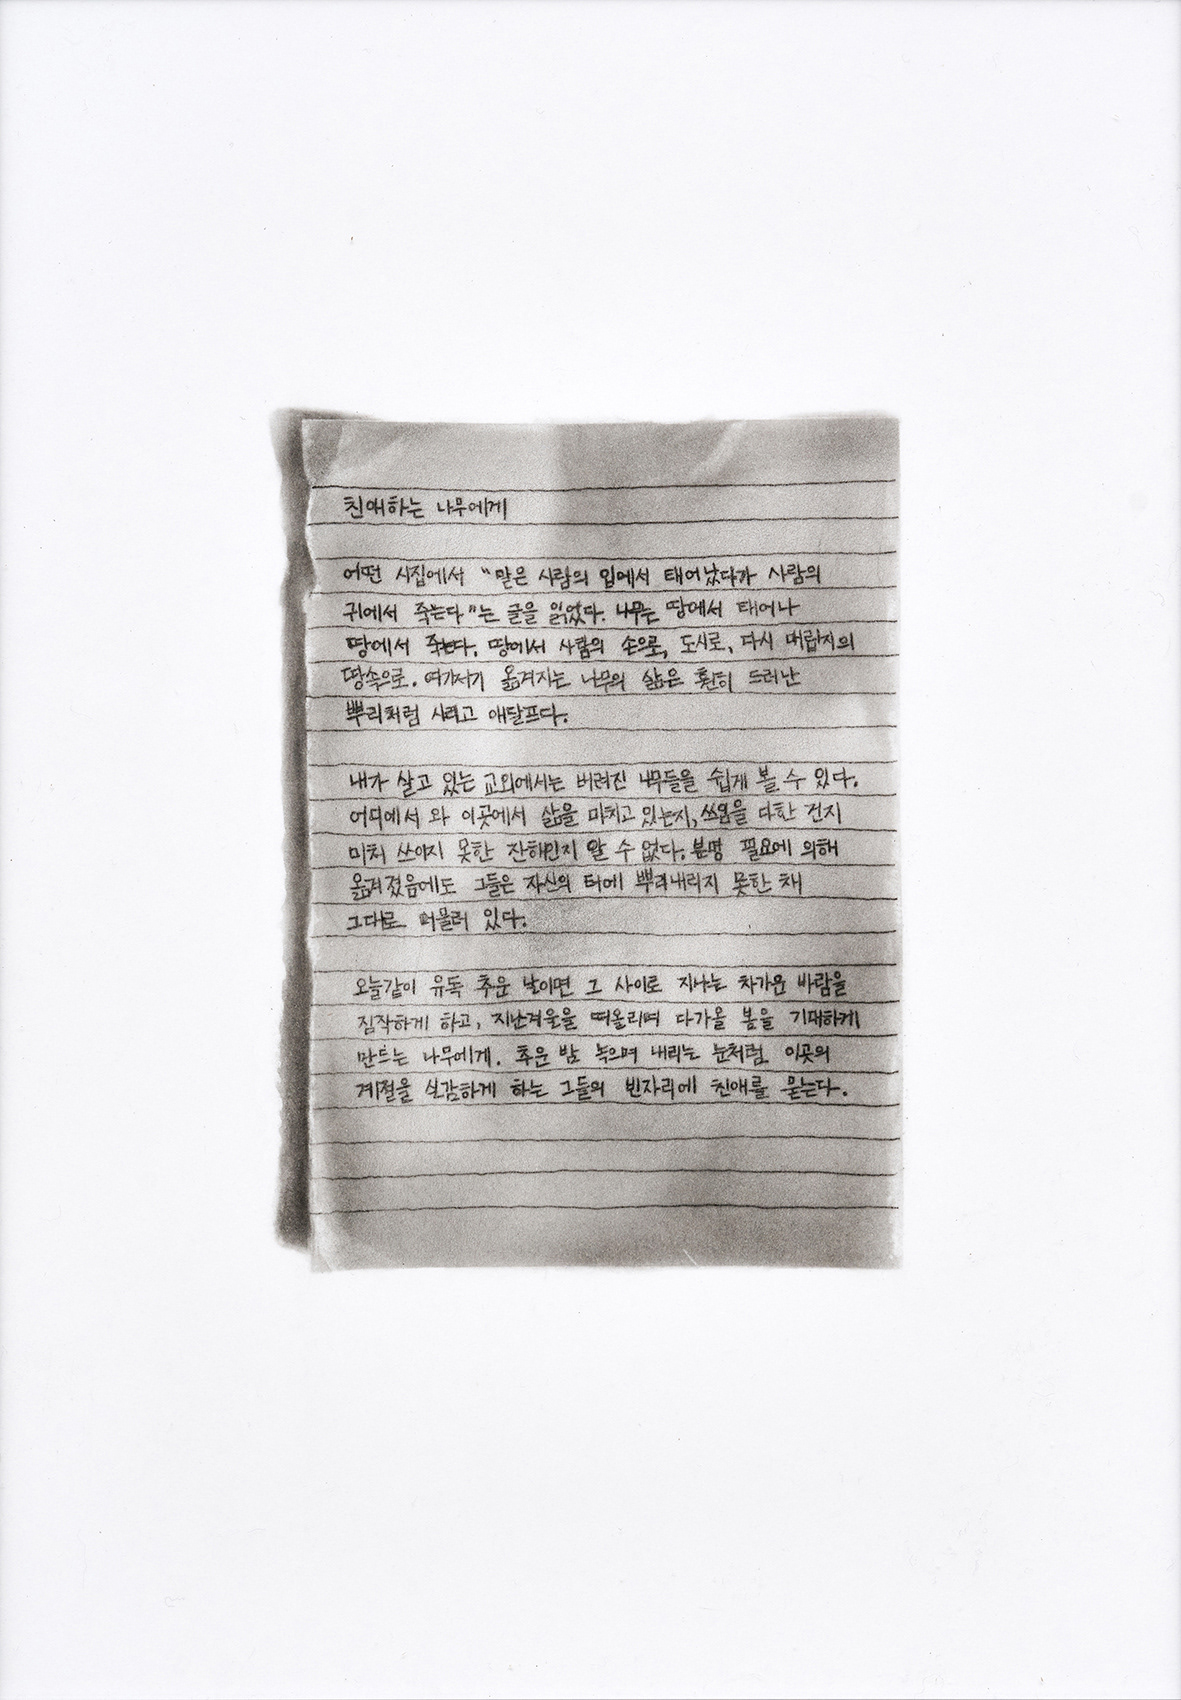 친애하는 나무에게
어떤 시집에서 “말은 사람의 입에서 태어났다가 사람의
귀에서 죽는다”는 글을 읽었다. 나무는 땅에서 태어나
땅에서 죽는다. 땅에서 사람의 손으로, 도시로, 다시 매립지의
땅속으로. 여기저기 옮겨지는 나무의 삶은 훤히 드러난
뿌리처럼 시리고 애달프다.
내가 살고 있는 교외에서는 버려진 나무들을 쉽게 볼 수 있다.
어디에서 와 이곳에서 삶을 마치고 있는지, 쓰임을 다한 건지
미처 쓰이지 못한 잔해인지 알 수 없다. 분명 필요에 의해
옮겨졌음에도 그들은 자신의 터에 뿌리내리지 못한 채
그대로 머물러 있다.
오늘같이 유독 추운 날이면 그 사이로 지나는 차가운 바람을
짐작하게 하고, 지난겨울을 떠올리며 다가올 봄을 기대하게
만드는 나무에게. 추운 밤 녹으며 내리는 눈처럼 이곳의
계절을 실감하게 하는 그들의 빈자리에 친애를 묻는다.